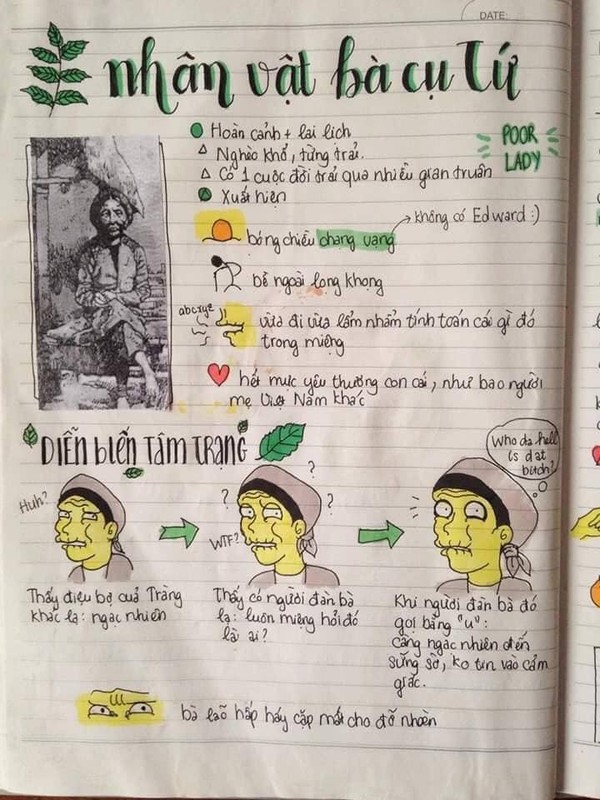 DATE:
nhân vật bà cụ Tứ
Hoàn cảnh + lai lịch
Nghèo khổ, từng trải.
Có 1 cuộc đời trải qua nhiều gian truân
POOR
LADY
Xuất hiện
không có Edward :)
bóng chiều chạng vạng
bề ngoài lọng khọng
abcxyz
vừa đi vừa lẩm nhẩm tính toán cái gì đó
trong miệng
hết mực yêu thương con cái, như bao người
mẹ Việt Nam khác
DIỄN BIẾN TÂM TRẠNG
Huh?
?
?
?
WTF?
Who da hell
is dat
bitch?
Thấy điệu bộ của Tràng
khác lạ: ngạc nhiên
Thấy có người đàn bà
lạ: luôn miệng hỏi đó
là ai?
Khi người đàn bà đó
gọi bằng "u":
càng ngạc nhiên đến
sững sờ, ko tin vào cảm
giác.
bà lão hấp háy cặp mắt cho đỡ nhoèn